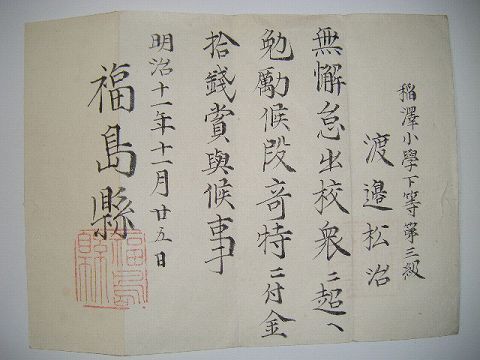 稲澤小學下等第三級
渡邉松治
無懈怠出校衆ニ超ヘ
勉勵候段竒特ニ付金
拾錢賞與候事
明治十一年十一月廿五日
福島縣
福島縣